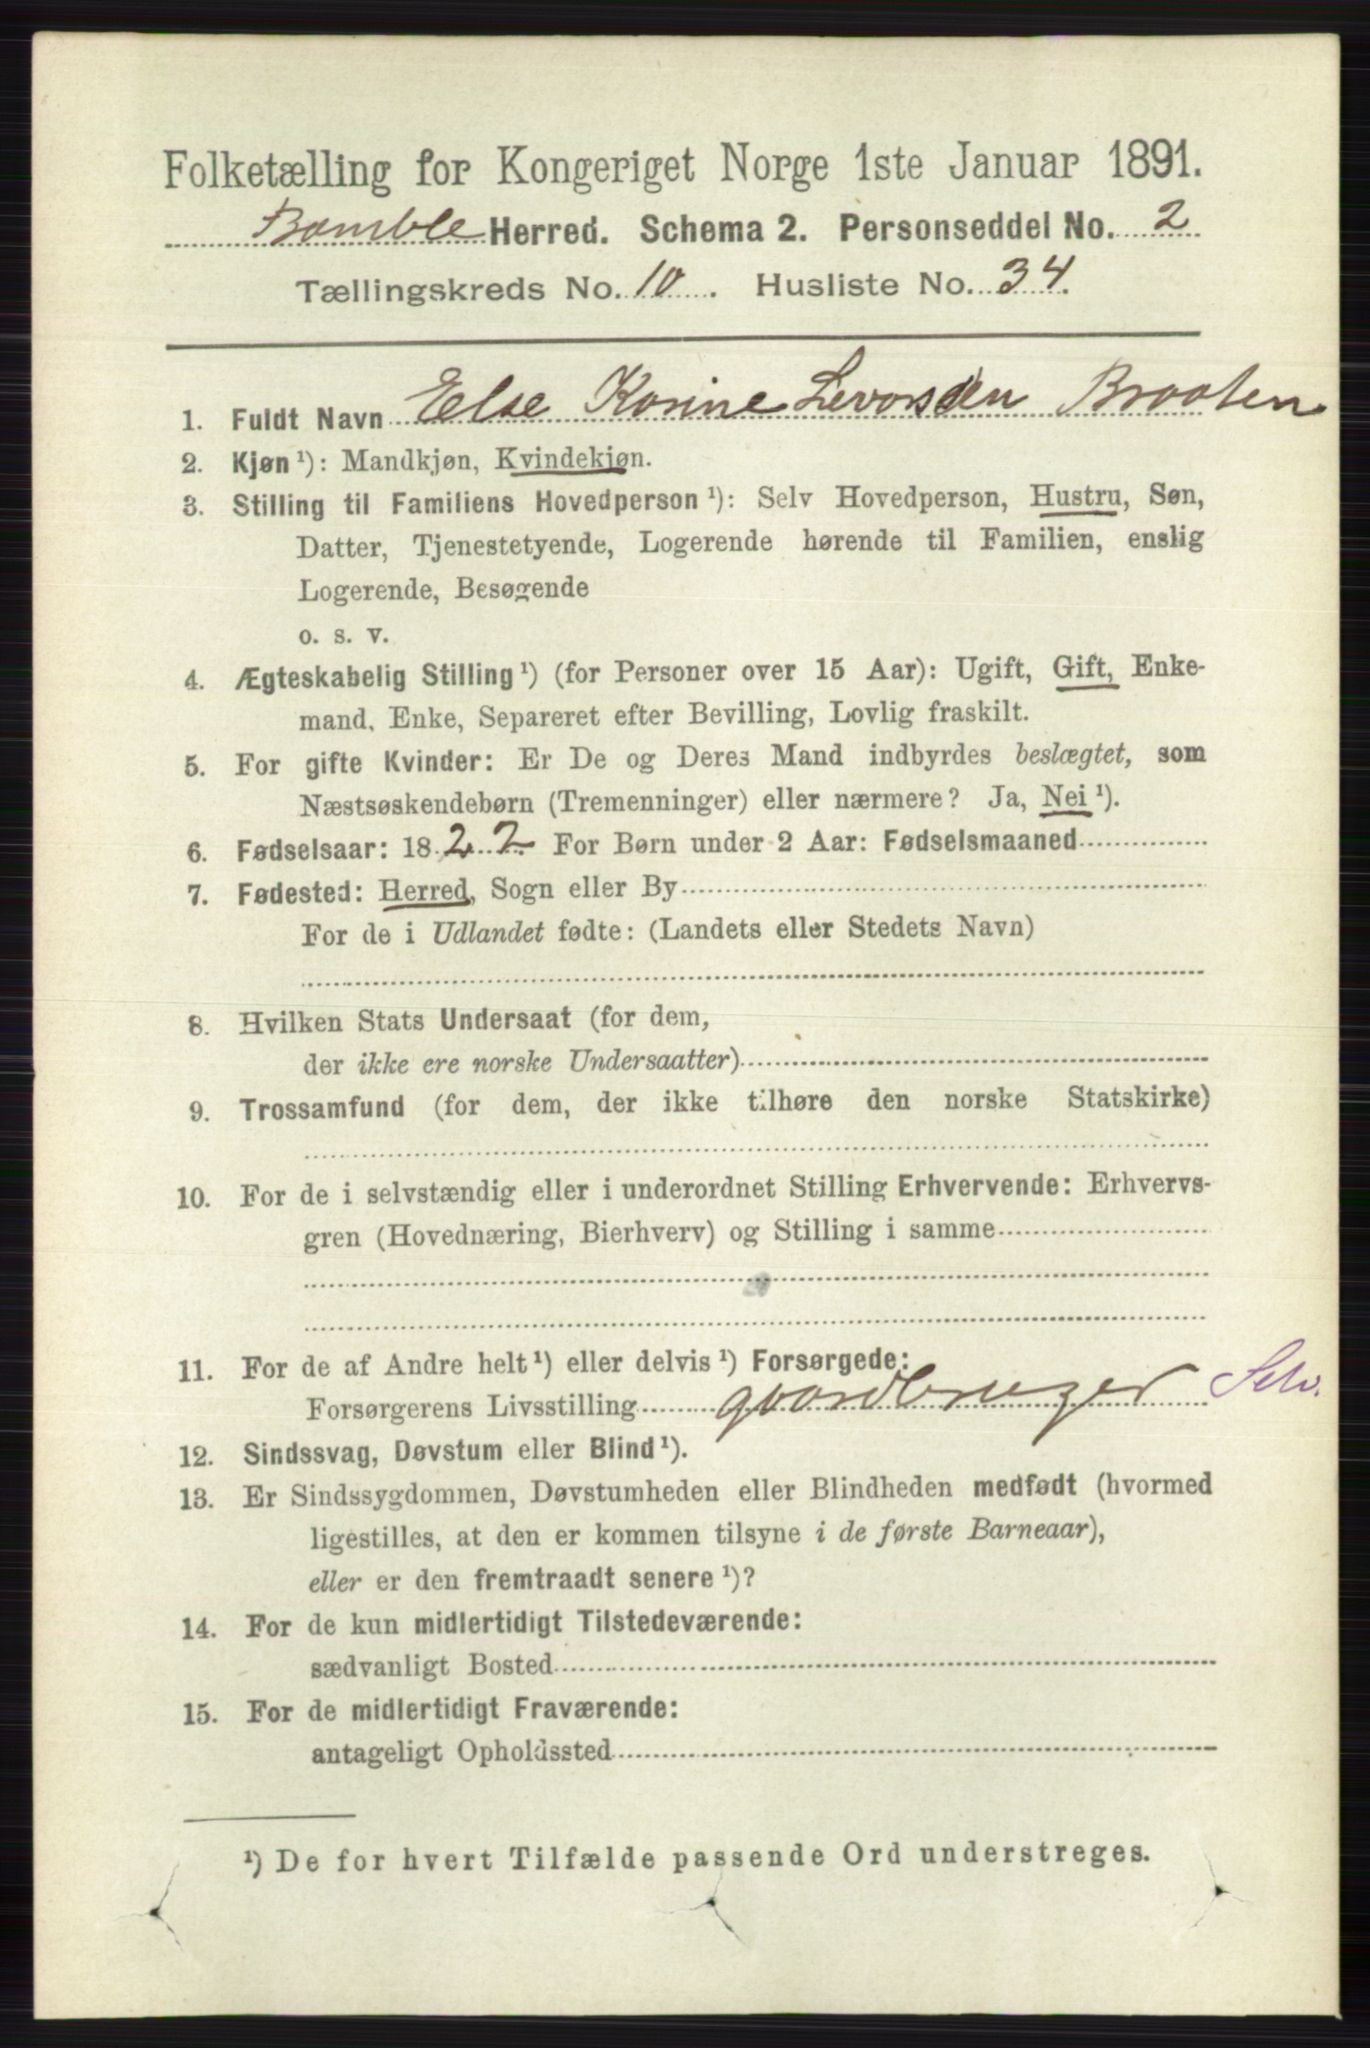 Folketælling for Kongeriget Norge 1ste Januar 1891.
Bamble Herred. Schema 2. Personseddel No. 2
Tællingskreds No. 10. Husliste No. 34.
1. Fuldt Navn Else Karine Levorsen Braaten
2. Kjøn ¹): Mandkjøn, Kvindekjøn.
3. Stilling til Familiens Hovedperson ¹): Selv Hovedperson, Hustru, Søn,
Datter, Tjenestetyende, Logerende hørende til Familien, enslig
Logerende, Besøgende
o. s. v.
4. Ægteskabelig Stilling ¹) (for Personer over 15 Aar): Ugift, Gift, Enke-
mand, Enke, Separeret efter Bevilling, Lovlig fraskilt.
5. For gifte Kvinder: Er De og Deres Mand indbyrdes beslægtet, som
Næstsøskendebørn (Tremenninger) eller nærmere? Ja, Nei ¹).
6. Fødselsaar: 1822 For Børn under 2 Aar: Fødselsmaaned
7. Fødested: Herred, Sogn eller By
For de i Udlandet fødte: (Landets eller Stedets Navn)
8. Hvilken Stats Undersaat (for dem,
der ikke ere norske Undersaatter)
9. Trossamfund (for dem, der ikke tilhøre den norske Statskirke)
10. For de i selvstændig eller i underordnet Stilling Erhvervende: Erhvervs-
gren (Hovednæring, Bierhverv) og Stilling i samme
11. For de af Andre helt ¹) eller delvis ¹) Forsørgede:
Forsørgerens Livsstilling gaardbruger Selv.
12. Sindssvag, Døvstum eller Blind ¹).
13. Er Sindssygdommen, Døvstumheden eller Blindheden medfødt (hvormed
ligestilles, at den er kommen tilsyne i de første Barneaar),
eller er den fremtraadt senere ¹)?
14. For de kun midlertidigt Tilstedeværende:
sædvanligt Bosted
15. For de midlertidigt Fraværende:
antageligt Opholdssted
¹) De for hvert Tilfælde passende Ord understreges.